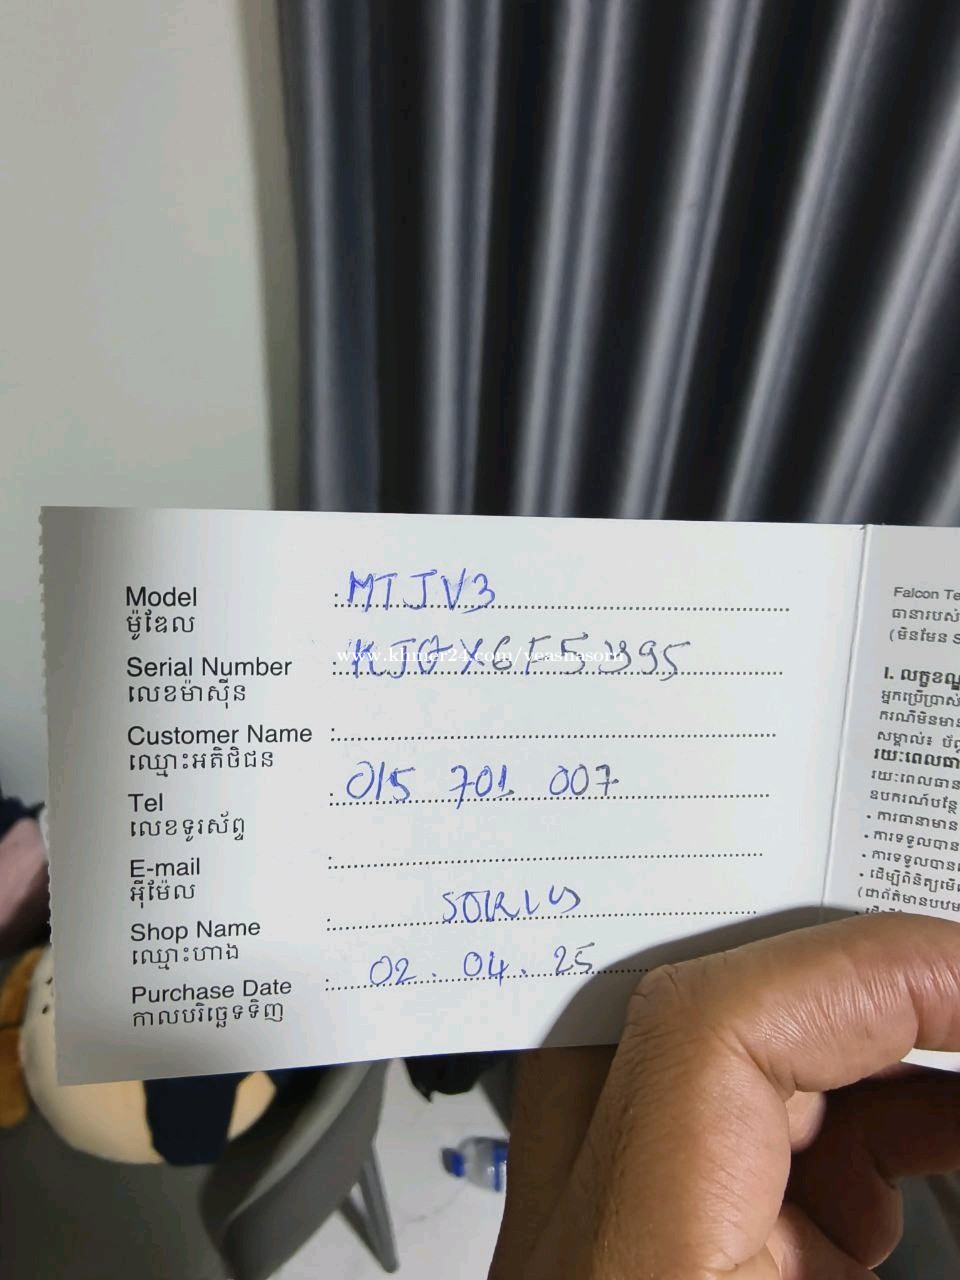 Model : MTJV3
ម៉ូឌែល
Serial Number :
លេខម៉ាស៊ីន
www.khmer24.com/veasnasorn
Customer Name :
ឈ្មោះអតិថិជន
Tel : 015 701 007
លេខទូរស័ព្ទ
E-mail :
អ៊ីម៉ែល
Shop Name :
ឈ្មោះហាង
Purchase Date : 02.04.25
កាលបរិច្ឆេទទិញ
Falcon Te
ធានារបស់
(មិនមែន S
I. លក្ខខណ្ឌ
អ្នកប្រើប្រាស់
ករណីមិនមាន
សម្គាល់៖
រយៈពេលធា
រយៈពេលធាន
ឧបករណ៍បន្ថែ
• ការធានាមាន
• ការទទួលបាន
• ការទទួលបាន
• ដើម្បីពិនិត្យមើ
(ជាព័ត៌មានបឋម